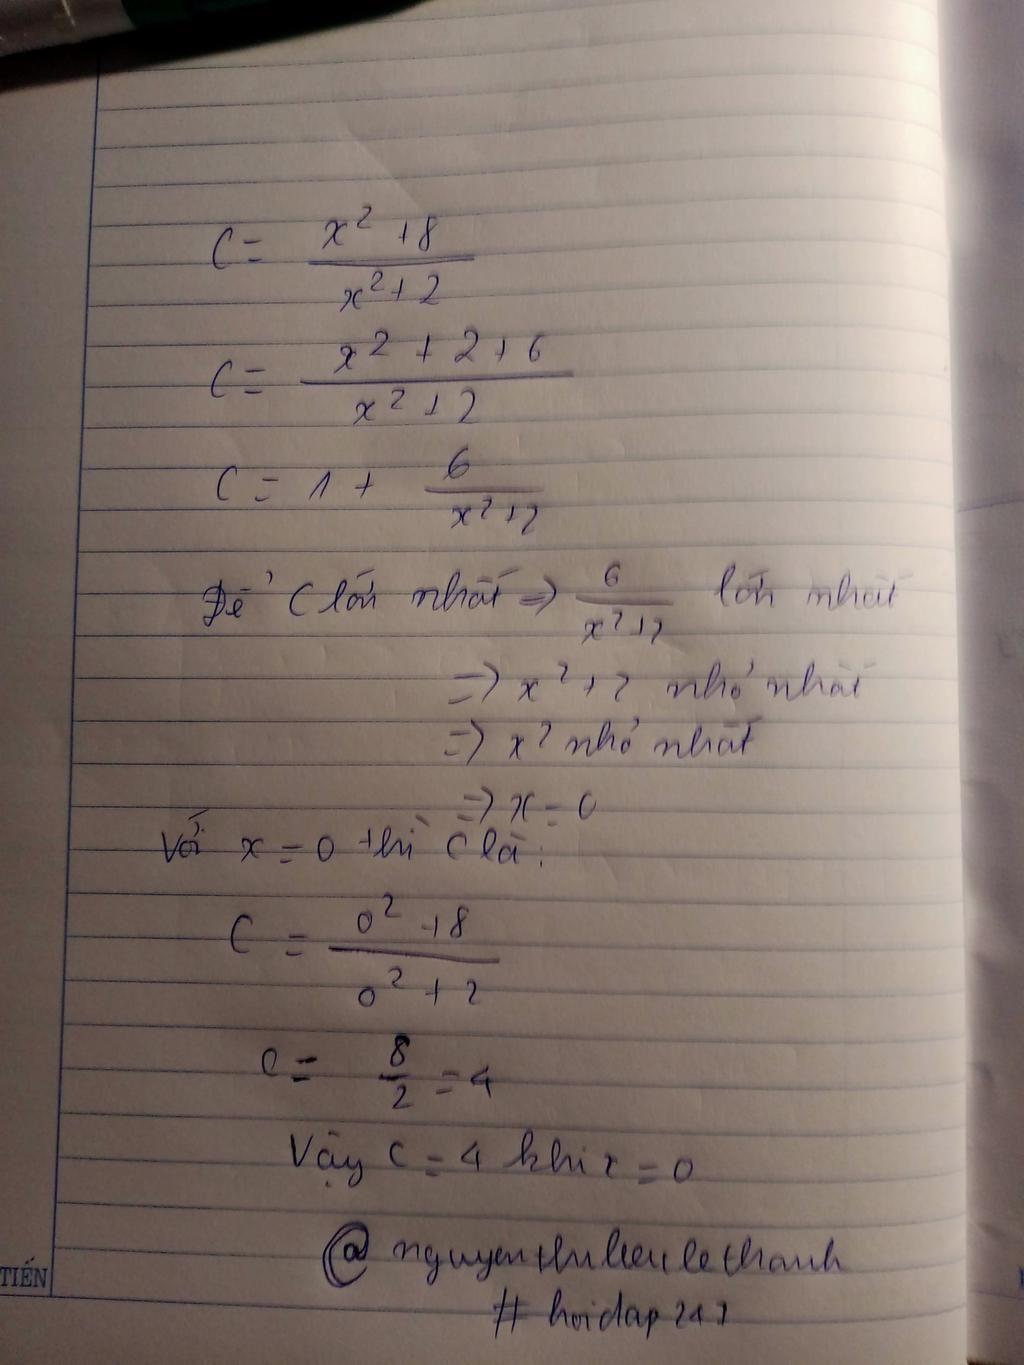 C = \frac{x^2 + 8}{x^2 + 2}
C = \frac{x^2 + 2 + 6}{x^2 + 2}
C = 1 + \frac{6}{x^2 + 2}
Để C lớn nhất => \frac{6}{x^2 + 2} lớn nhất
=> x^2 + 2 nhỏ nhất
=> x^2 nhỏ nhất
=> x = 0
Với x = 0 thì C là:
C = \frac{0^2 + 8}{0^2 + 2}
C = \frac{8}{2} = 4
Vậy C = 4 khi x = 0
TIẾN
# hoidap247